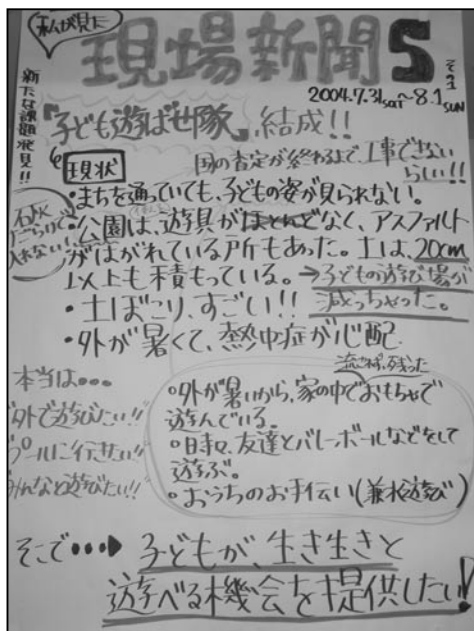 私が見た
現場新聞S
その1
2004.7.31SAT〜8.1SUN
新たな課題発見!!
『子ども遊ばせ隊』結成!!
現状
国の査定が終わるまで、工事できない
らしい!!
・まちを通っていても、子どもの姿が見られない。
・公園は、遊具がほとんどなく、アスファルト
がはがれている所もあった。土は、20cm
以上も積もっている。→子どもの遊び場が
減っちゃった。
・土ぼこり、すごい!!
・外が暑くて、熱中症が心配
入れない!
流されず、残った
本当は・・・
外で遊びたい!!
プールに行きたい!!
みんなと遊びたい!!
○外が暑いから、家の中でおもちゃで
遊んでいる。
○日時々、友達とバレーボールなどをして
遊ぶ。
○おうちのお手伝い(兼水遊び)
そこで・・・▶子どもが、生き生きと
遊べる機会を提供したい!